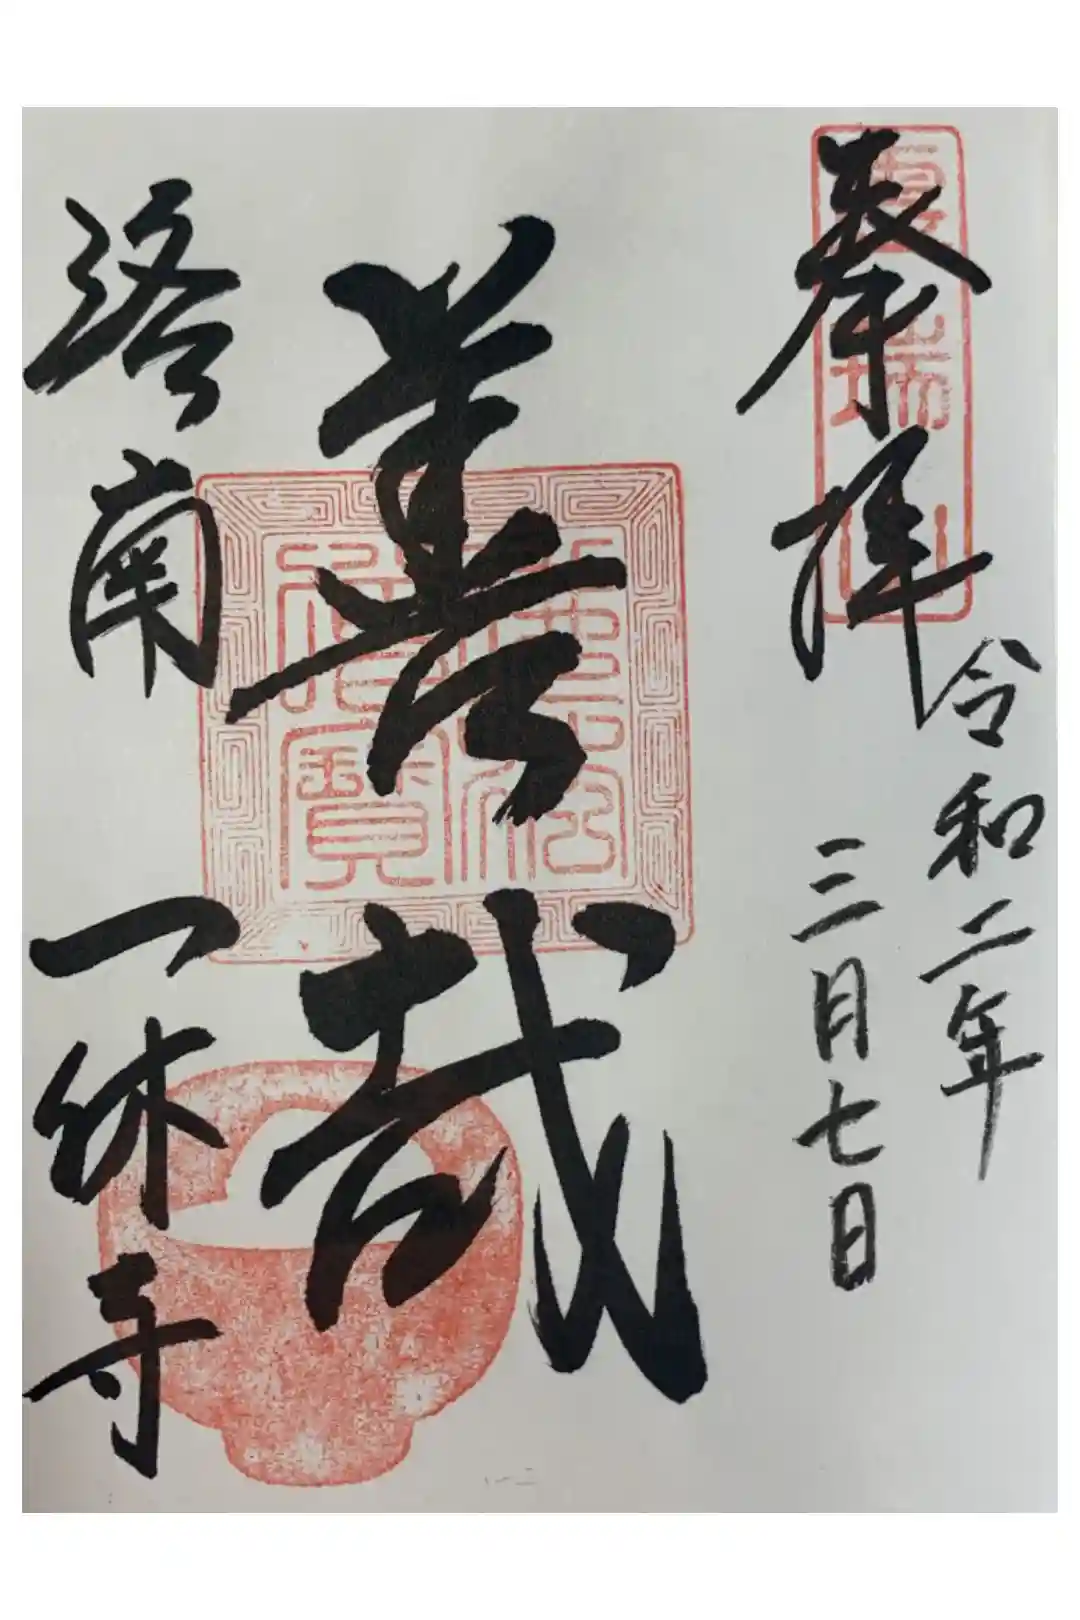 奉拝
令和二年
三月七日
善哉
佛法僧寳
洛南
一休寺